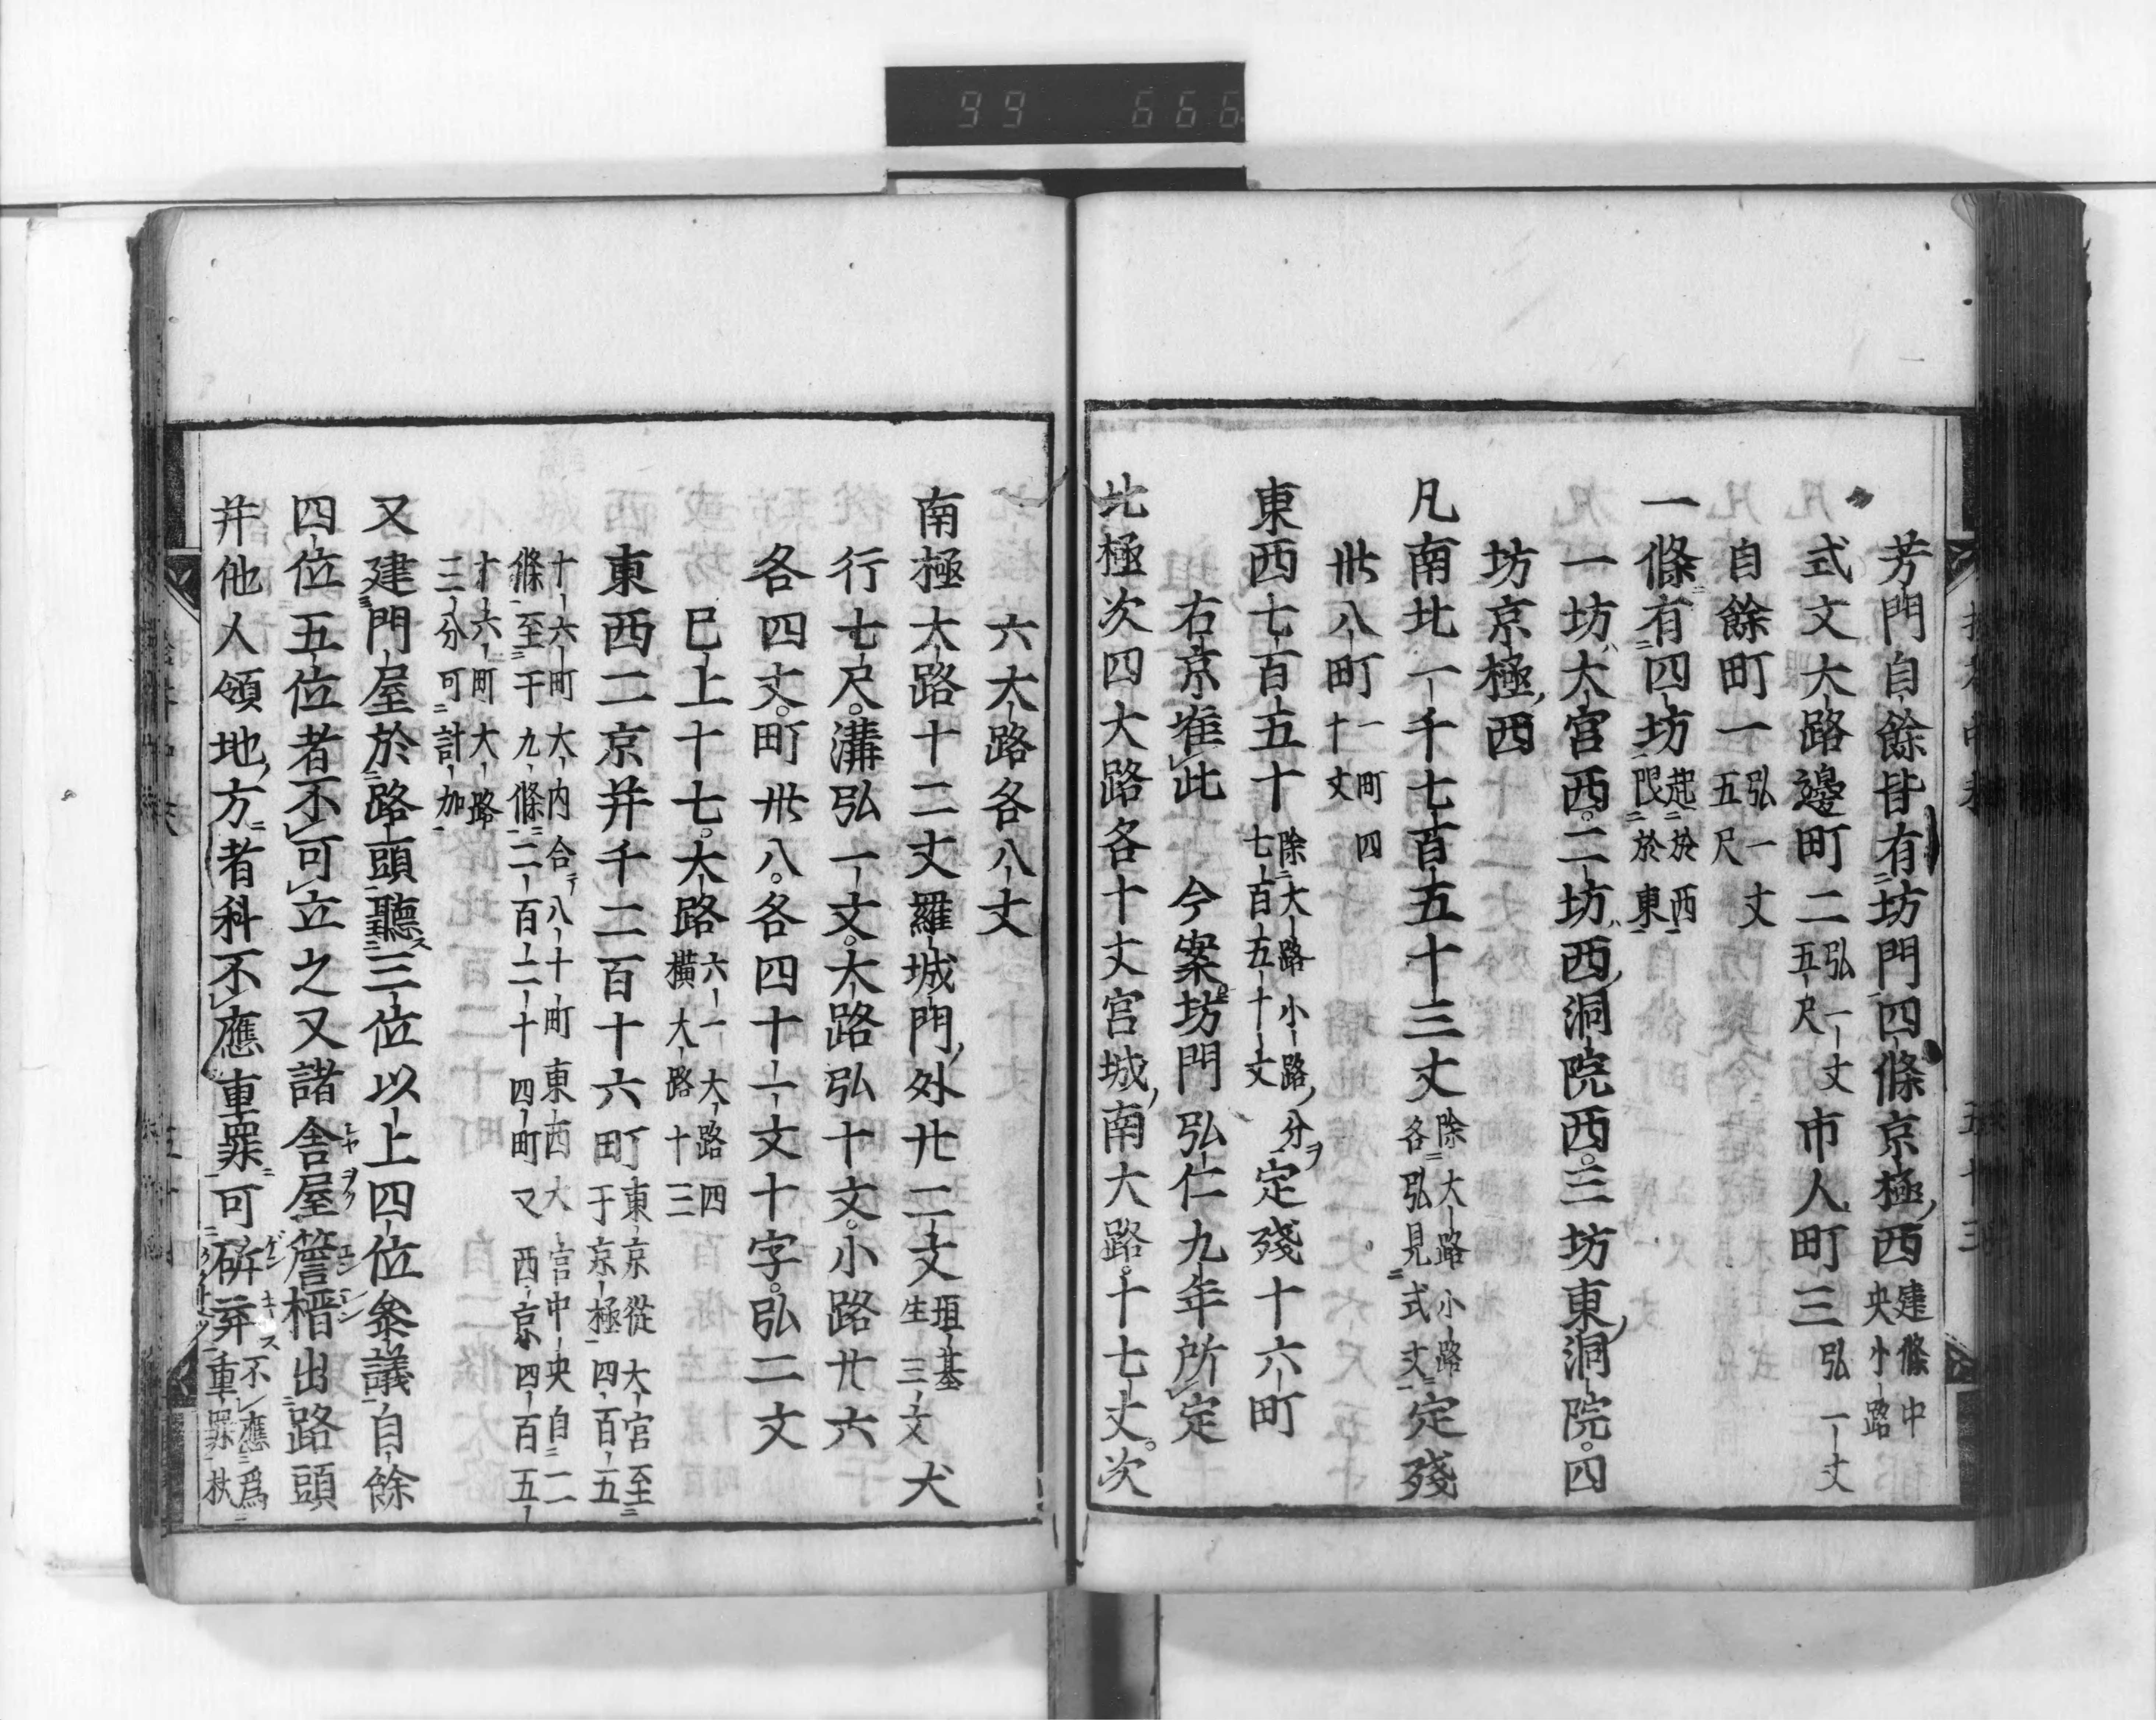 99 666
芳門自餘皆有坊門四條京極西建條中央小路
式文大路邊町二弘一丈五尺市人町三弘一丈
自餘町一弘一丈五尺
一條有四坊起於西限於東
一坊大宮西。二坊西洞院西。三坊東洞院。四
坊京極西
凡南北一千七百五十三丈除大路小路各弘見式文定殘
卅八町一町四十丈
東西七百五十除大路小路分七百五十丈定殘十六町
右京准此 今案坊門弘仁九年所定
北極次四大路各十丈宮城南大路。十七丈。次
六大路各八丈
南極大路十二丈羅城門外廿二丈垣基三丈犬
生行七尺。溝弘一丈。大路弘十丈。小路廿六
各四丈。町卅八。各四十一丈十字。弘二丈
巳上十七。大路六一大路四橫大路十三
東西二京并千二百十六町東京從大宮至于京極四百五
十六町大内合八十町東西大宮中央自二條至于九條二百二十四町又西京四百五
十六町大路二三分可計加
又建門屋於路頭聽三位以上四位參議自餘
四位五位者不可立之又諸舎屋簷榗出路頭
并他人領地方者科不應重罪可硑弃不應爲重罪杖